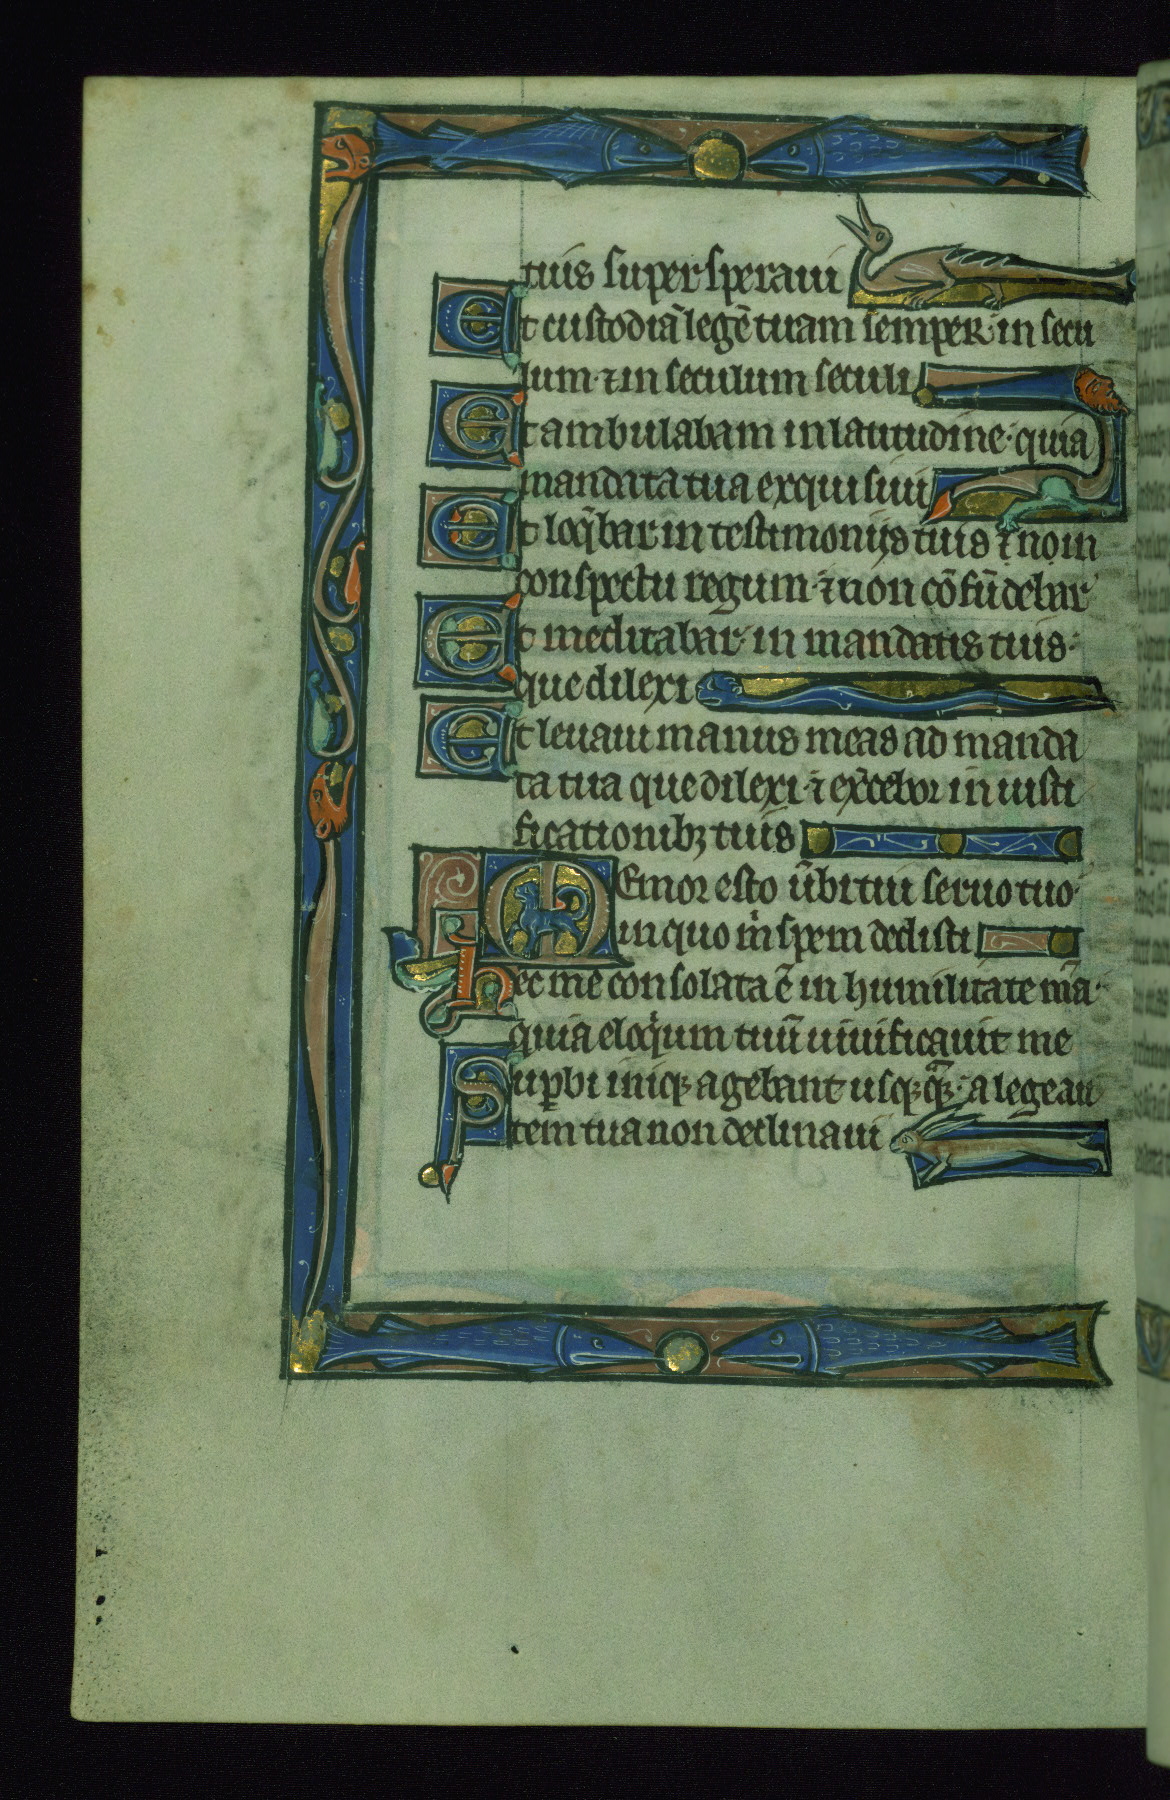 tuis supersperaui
Et custodiā legē tuam semper: in secu
lum ⁊ in seculum seculi
Et ambulabam in latitudine: quia
mandata tua exquisiui
Et loq̄bar in testimonijs tuis ⁊ no in
conspectu regum: ⁊ non cōfūdebar
Et meditabar in mandatis tuis:
que dilexi
Et leuaui manus meas ad manda
ta tua que dilexi: ⁊ exͨcebor in iusti
ficationibꝫ tuis
Memor esto ūbi tui seruo tuo
in quo mͥ spem dedisti
Hec me consolata ē in humilitate mā:
quia eloqͥum tuū uiuificauit me
Supꝑbi iniq̧ agebant usq̧q̧ᷓ: a lege au
tem tua non declinaui